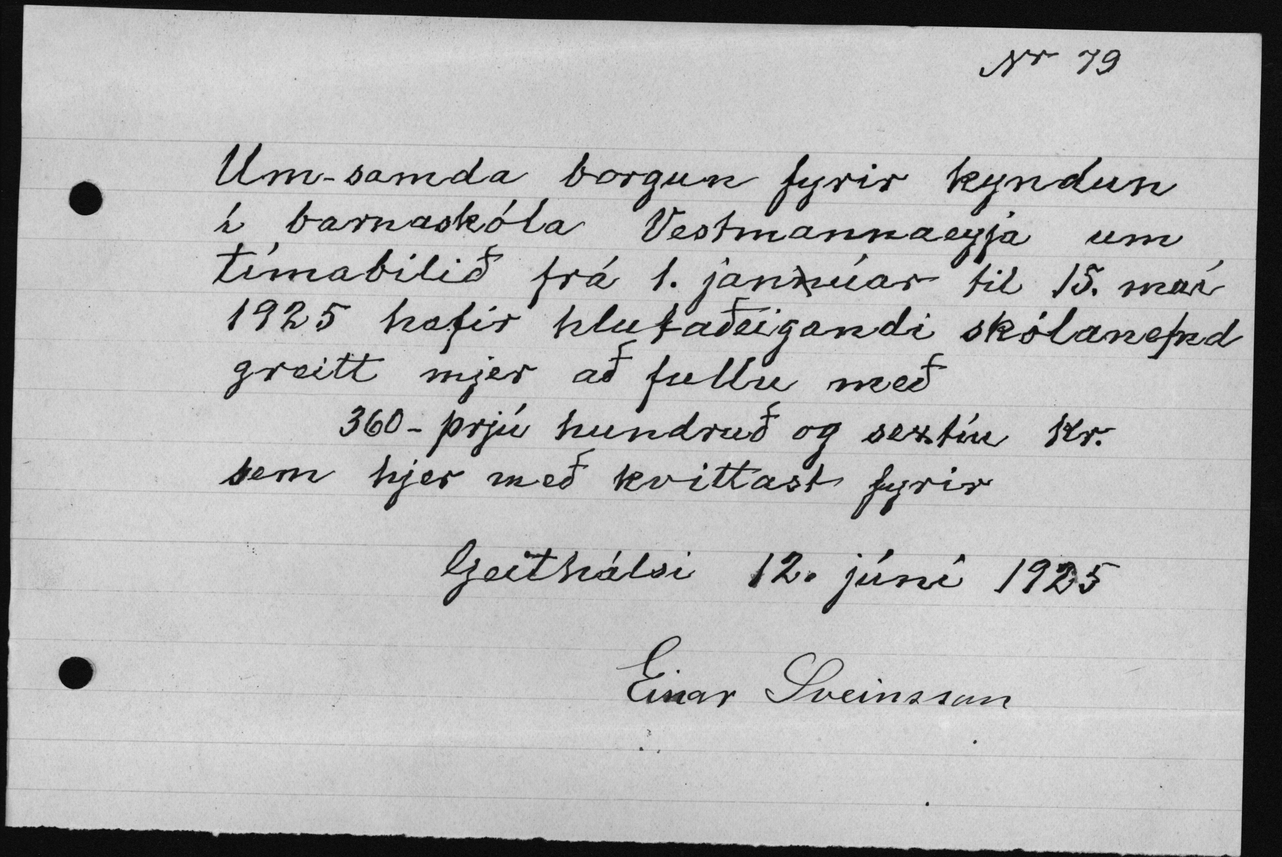 Nr 79
Um-samda borgun fyrir kyndun
í barnaskóla Vestmannaeyja um
tímabilið frá 1. janúar til 15. maí
1925 hefir hlutaðeigandi skólanefnd
greitt mjer að fullu með
360- þrjú hundruð og sextíu Kr.
sem hjer með kvittast fyrir
Geithálsi 12. júní 1925
Einar Sveinsson